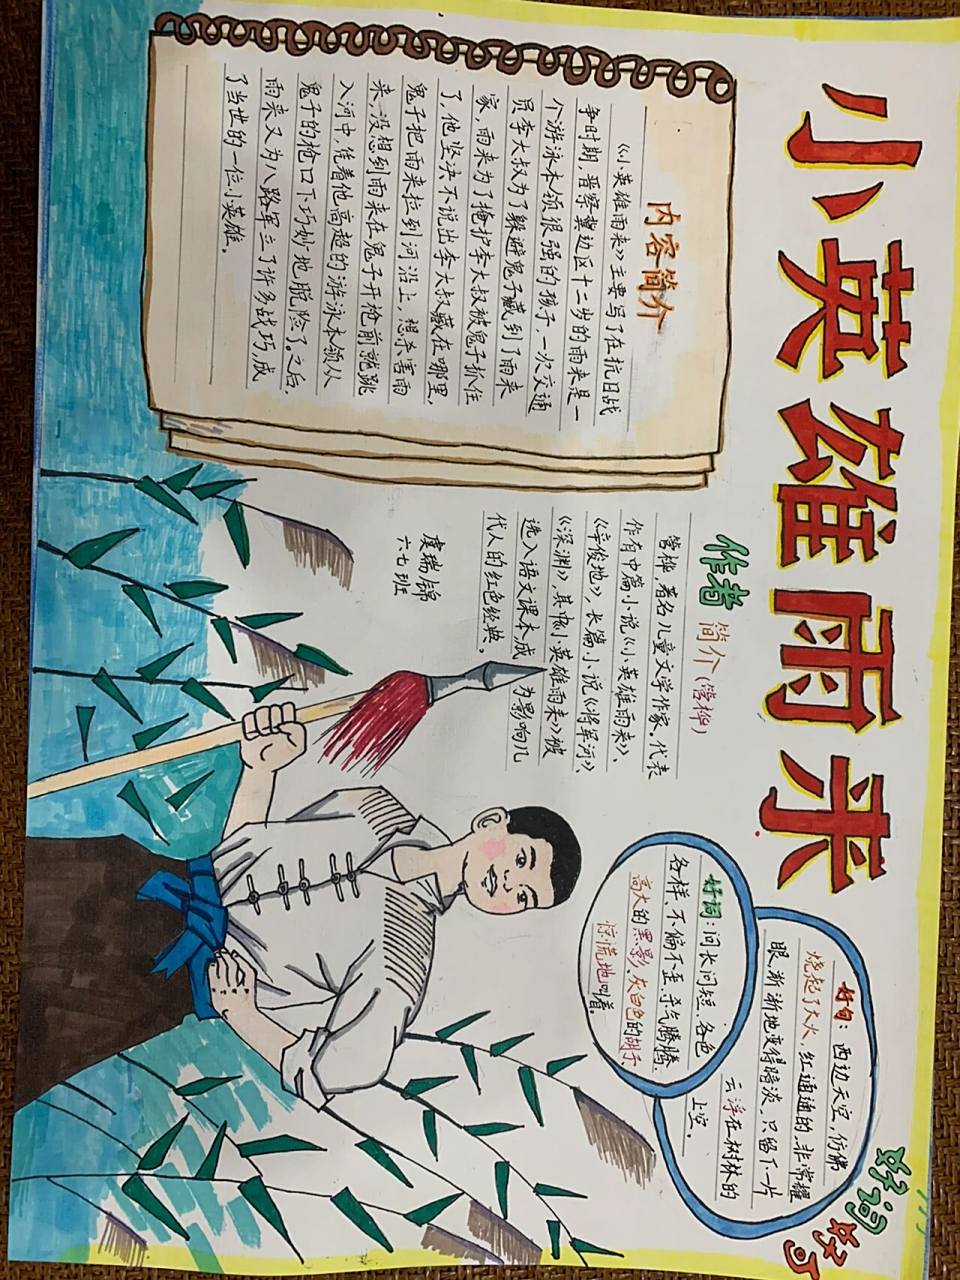 小英雄雨来
内容简介
《小英雄雨来》主要写了在抗日战
争时期,晋察冀边区十二岁的雨来是一
个游泳本领很强的孩子,一次交通
员李大叔为了躲避鬼子藏到了雨来
家,雨来为了掩护李大叔被鬼子抓住
了,他坚决不说出李大叔藏在哪里,
鬼子把雨来拉到河沿上,想杀害雨
来,没想到雨来在鬼子开枪前就跳
入河中,凭着他高超的游泳本领从
鬼子的枪口下巧妙地脱险了之后,
雨来又为八路军立了许多战巧,成
了当世的一位小英雄。
作者简介(管桦)
管桦,著名儿童文学作家。代表
作有中篇小说《小英雄雨来》、
《辛俊地》,长篇小说《将军河》、
《深渊》,其中《小英雄雨来》被
选入语文课本,成为影响几
代人的红色经典。
虞瑞锦
六七班
好词好句
好词:问长问短、各色
各样、不偏不歪、杀气腾腾、
高大的黑影、灰白色的胡子
惊慌地叫着。
好句:西边天空,仿佛
烧起了大火,红通通的,非常耀
眼,渐渐地变得暗淡,只留下一片
云浮在树林的
上空。